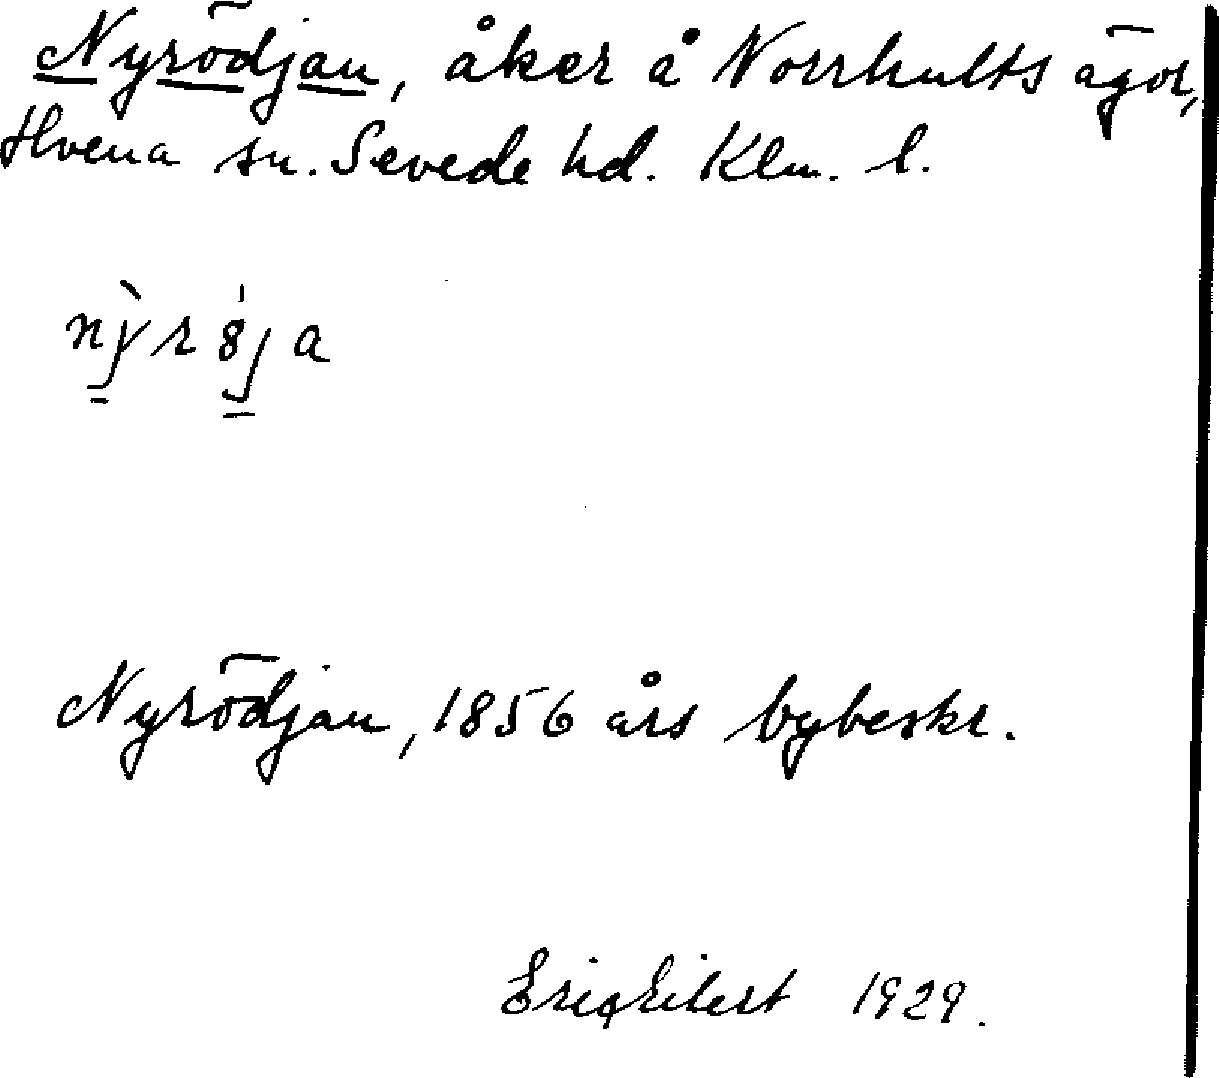 Nyrödjan, åker å Norrhults ägor,
Hvena sn. Sevede hd. Klm. l.
Nyrödjan, 1856 års bybeskr.
1929.